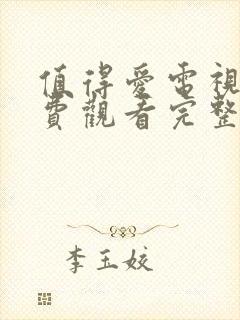 值得愛電視
費觀看完整
李玉姣